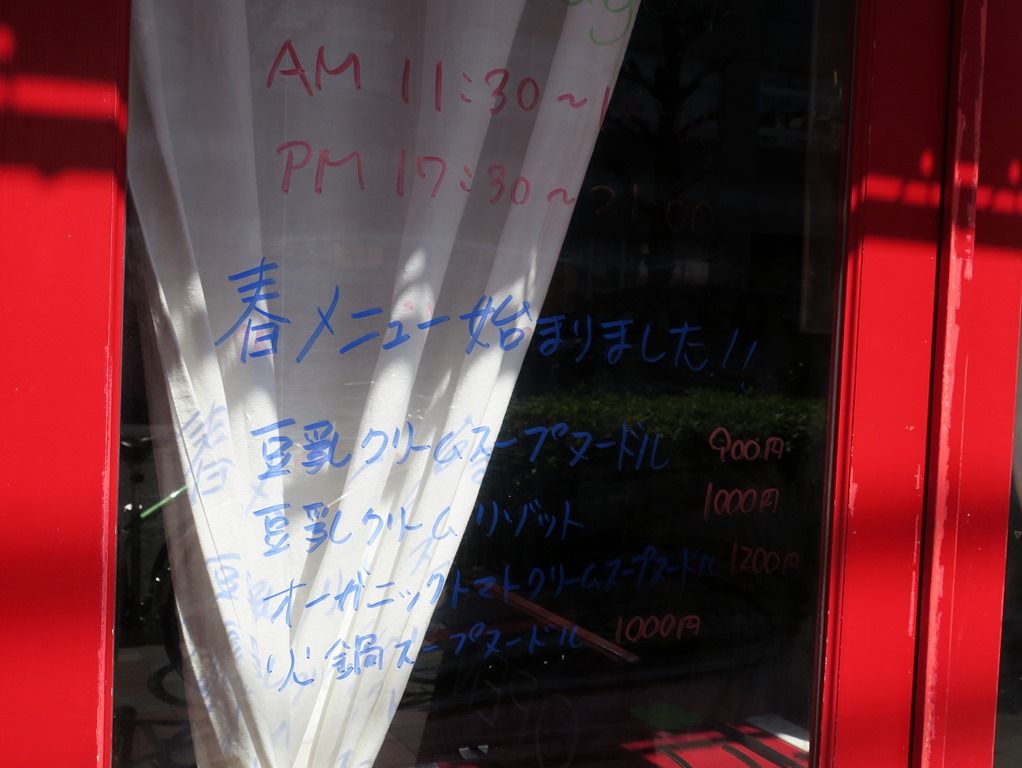 AM 11:30～
PM 17:30～21:00
春メニュー始まりました!!
豆乳クリームスープヌードル 900円
豆乳クリームリゾット 1000円
オーガニックトマトクリームスープヌードル 1200円
鍋スープヌードル 1000円